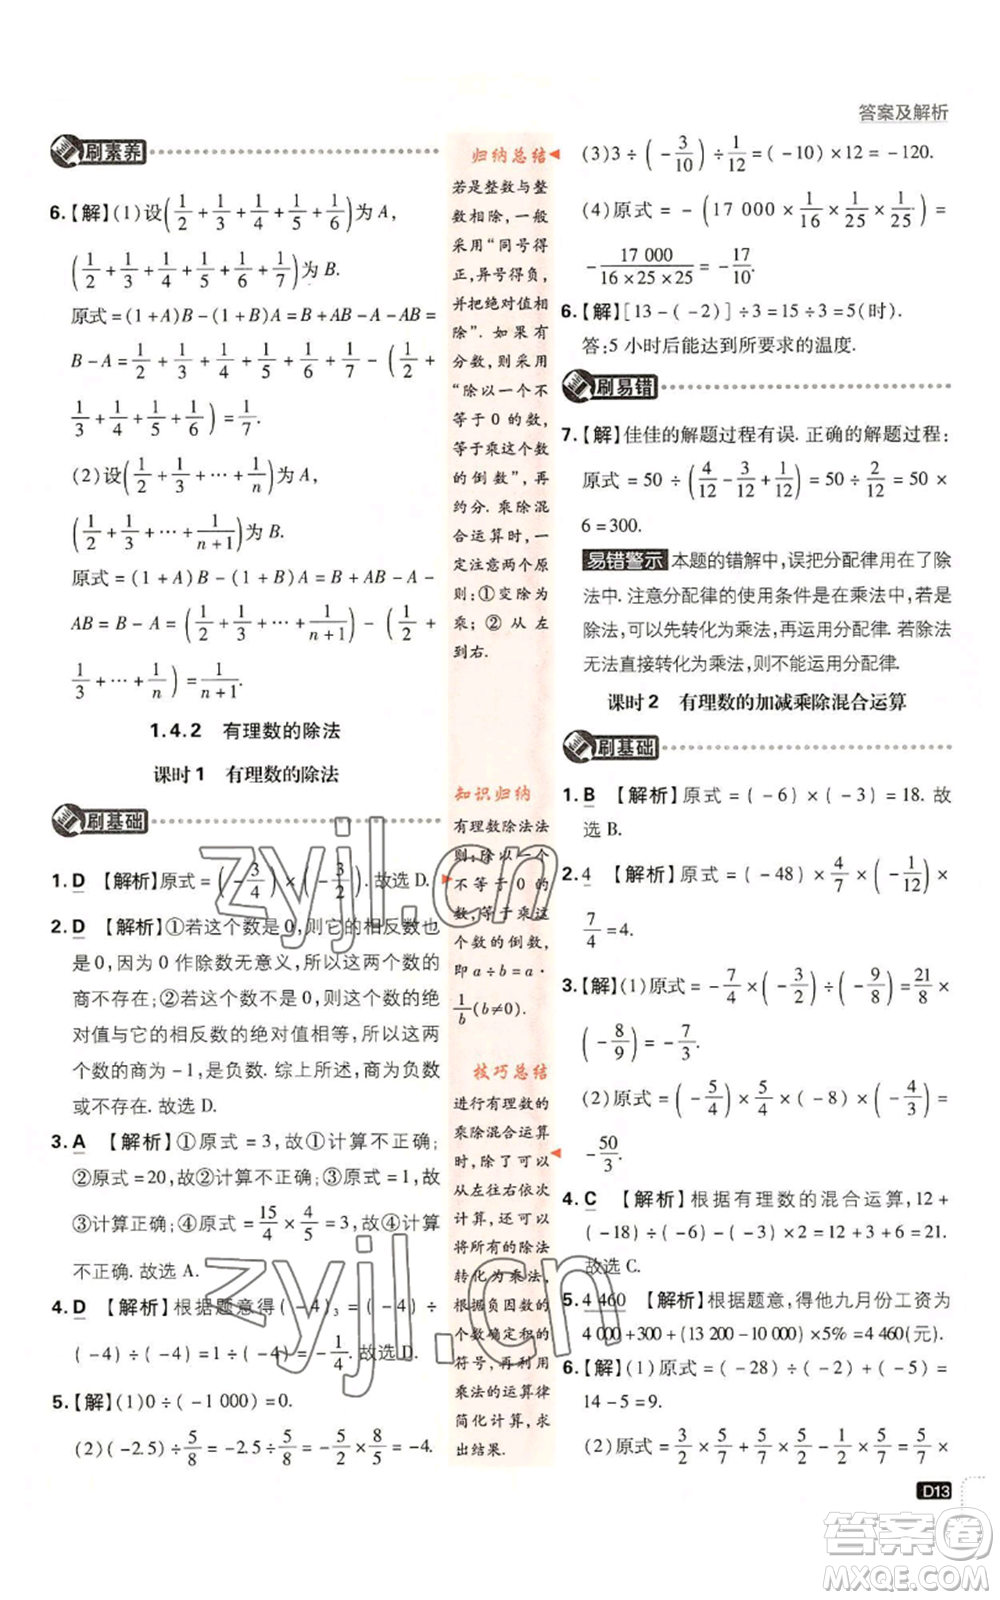 答案及解析
刷素养
6.【解】(1)设(1/2+1/3+1/4+1/5+1/6)为A,
(1/2+1/3+1/4+1/5+1/6+1/7)为B.
原式=(1+A)B-(1+B)A=B+AB-A-AB=
B-A=1/2+1/3+1/4+1/5+1/6+1/7-(1/2+
1/3+1/4+1/5+1/6)=1/7.
(2)设(1/2+1/3+…+1/n)为A,
(1/2+1/3+…+1/(n+1))为B.
原式=(1+A)B-(1+B)A=B+AB-A-
AB=B-A=(1/2+1/3+…+1/(n+1))-(1/2+
1/3+…+1/n)=1/(n+1).
1.4.2 有理数的除法
课时1 有理数的除法
刷基础
1.D 【解析】原式=(-3/4)×(-3/2).故选D.
2.D 【解析】①若这个数是0,则它的相反数也
是0,因为0作除数无意义,所以这两个数的
商不存在;②若这个数不是0,则这个数的绝
对值与它的相反数的绝对值相等,所以这两
个数的商为-1,是负数.综上所述,商为负数
或不存在.故选D.
3.A 【解析】①原式=3,故①计算不正确;
②原式=20,故②计算不正确;③原式=6,故
③计算正确;④原式=15/4×4/5=3,故④计算
不正确.故选A.
4.D 【解析】根据题意得(-4)₃=(-4)÷
(-4)÷(-4)=1÷(-4)=-1/4.故选D.
5.【解】(1)0÷(-1 000)=0.
(2)(-2.5)÷5/8=-2.5÷5/8=-2.5×8/5=-4.
归纳总结
若是整数与整
数相除,一般
采用“同号得
正,异号得负,
并把绝对值相
除”.如果有
分数,则采用
“除以一个不
等于0的数,
等于乘这个数
的倒数”,再
约分.乘除混
合运算时,一
定注意两个原
则:①变除为
乘;②从左
到右.
知识归纳
有理数除法法
则:除以一个
不等于0的
数,等于乘这
个数的倒数,
即a÷b=a·
1/b(b≠0).
技巧总结
进行有理数的
乘除混合运算
时,除了可以
从左往右依次
计算,还可以
将所有的除法
转化为乘法,
根据负因数的
个数确定积的
符号,再利用
乘法的运算律
简化计算,求
出结果.
(3)3÷(-3/10)÷1/12=(-10)×12=-120.
(4)原式=-(17 000×1/16×1/25×1/25)=
-17 000/(16×25×25)=-17/10.
6.【解】[13-(-2)]÷3=15÷3=5(时).
答:5小时后能达到所要求的温度.
刷易错
7.【解】佳佳的解题过程有误.正确的解题过程:
原式=50÷(4/12-3/12+1/12)=50÷2/12=50×
6=300.
易错警示 本题的错解中,误把分配律用在了除
法中.注意分配律的使用条件是在乘法中,若是
除法,可以先转化为乘法,再运用分配律.若除法
无法直接转化为乘法,则不能运用分配律.
课时2 有理数的加减乘除混合运算
刷基础
1.B 【解析】原式=(-6)×(-3)=18.故
选B.
2.4 【解析】原式=(-48)×4/7×(-1/12)×
7/4=4.
3.【解】(1)原式=-7/4×(-3/2)÷(-9/8)=21/8
×(-8/9)=-7/3.
(2)原式=(-5/4)×(-5/4)×8×(-4/3)=
-50/3.
4.C 【解析】根据有理数的混合运算,12+
(-18)÷(-6)-(-3)×2=12+3+6=21.
故选C.
5.4 460 【解析】根据题意,得他九月份工资为
4 000+300+(13 200-10 000)×5%=4 460(元).
6.【解】(1)原式=(-28)÷(-2)+(-5)=
14-5=9.
(2)原式=3/2×5/7+5/7×5/2-1/2×5/7=5/7×
D13
zyjl.cn
zyjl.cn
答案圈
MXQE.COM